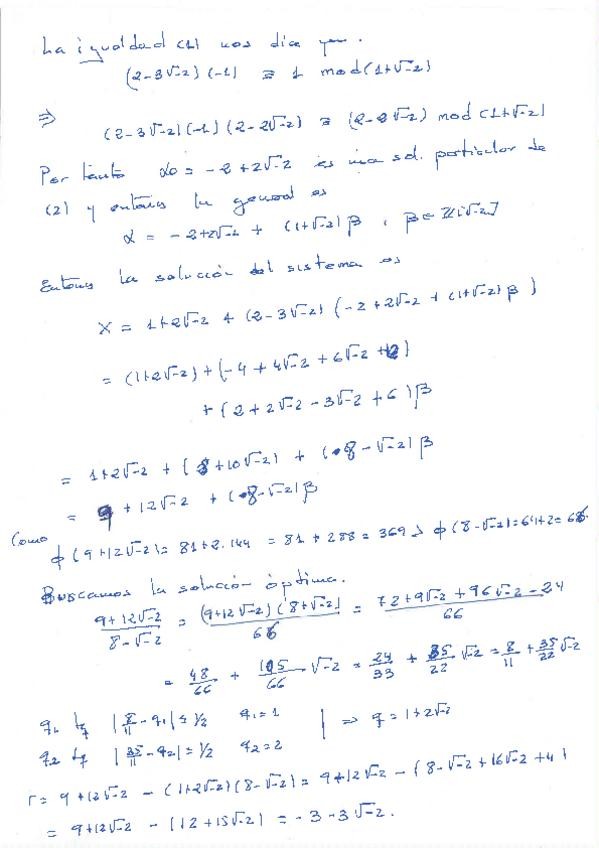 La igualdad (1) nos dice que.
(2-3√-2)(-1) ≡ 1 mod(1+√-2)
⇒ (2-3√-2)(-1)(2-2√-2) ≡ (2-2√-2) mod (1+√-2)
Por tanto α₀ = -2+2√-2 es una sol. particular de
(2) y entonces la general es
α = -2+2√-2 + (1+√-2)β , β∈ℤ[√-2]
Entonces la solución del sistema es
X = 1+2√-2 + (2-3√-2)(-2+2√-2+(1+√-2)β)
= (1+2√-2)+(-4+4√-2+6√-2+12)
+(2+2√-2-3√-2+6)β
= 1+2√-2 + (8+10√-2) + (8-√-2)β
= 9+12√-2 + (8-√-2)β
Como ϕ(9+12√-2)= 81+2·144 = 81+288 = 369 > ϕ(8-√-2)=64+2=66.
Buscamos la solución óptima.
(9+12√-2)/(8-√-2) = (9+12√-2)(8+√-2)/66 = (72+9√-2+96√-2-24)/66
= 48/66 + 105/66 √-2 = 24/33 + 35/22 √-2 = 8/11 + 35/22 √-2
q₁ tq |8/11 - q₁| ≤ 1/2 q₁=1 | ⇒ q = 1+2√-2
q₂ tq |35/11 - q₂| ≤ 1/2 q₂=2
r = 9+12√-2 - (1+2√-2)(8-√-2) = 9+12√-2 - (8-√-2+16√-2+4)
= 9+12√-2 - (12+15√-2) = -3-3√-2.